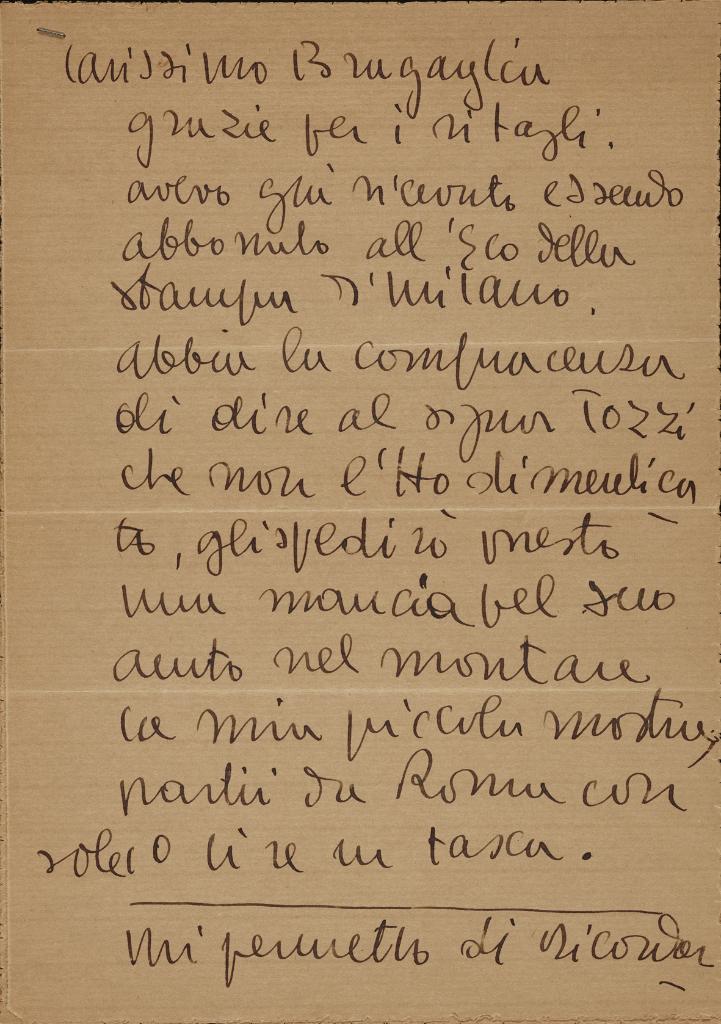 Carissimo Bragaglia
grazie per i ritagli.
avevo già ricevuto essendo
abbonato all'Eco della
stampa di Milano.
abbia la compiacenza
di dire al signor Tozzi
che non l'Ho dimentica
to, gli spedirò presto
una mancia pel suo
aiuto nel montare
la mia piccola mostra,
partii da Roma con
sole 10 lire in tasca.
Mi permetto di ricordar